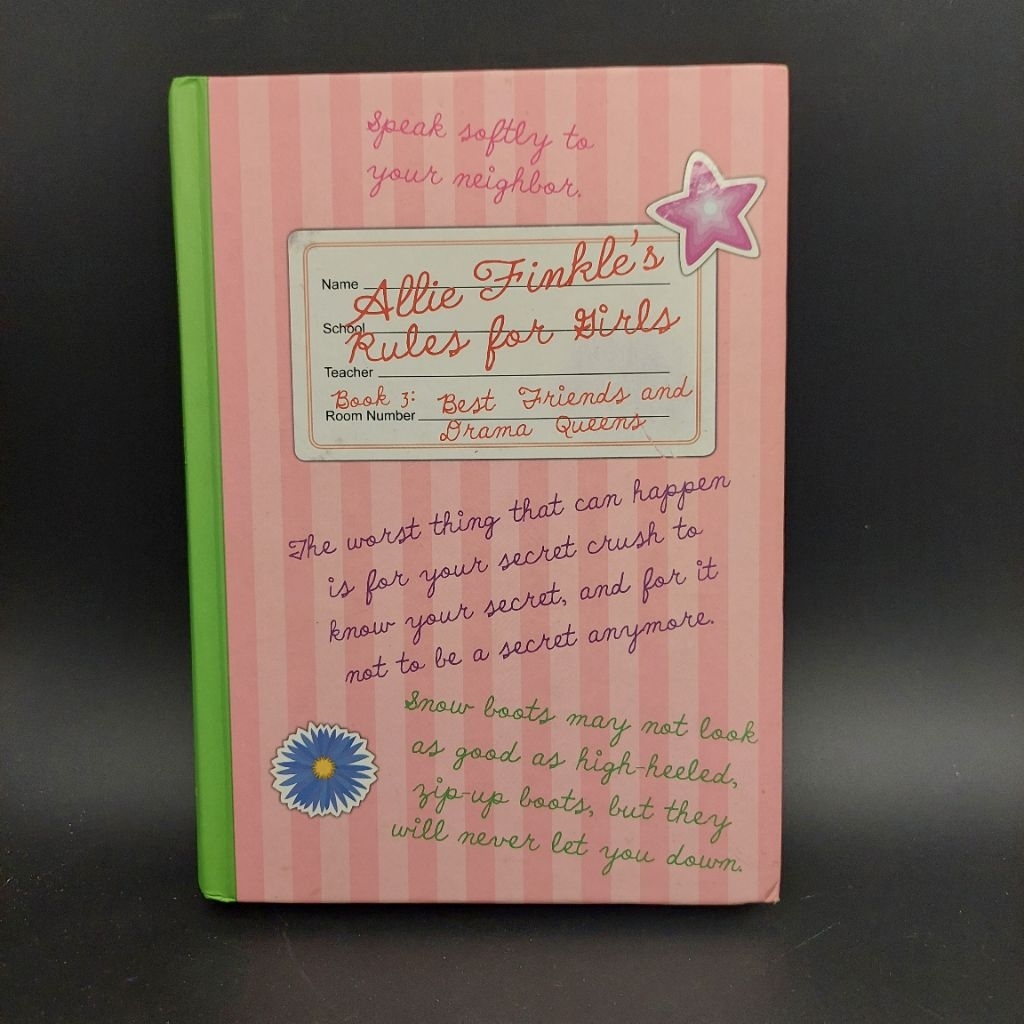 Speak softly to
your neighbor.
Name Allie Finkle's
School Rules for Girls
Teacher
Book 3: Best Friends and
Room Number Drama Queens
The worst thing that can happen
is for your secret crush to
know your secret, and for it
not to be a secret anymore.
Snow boots may not look
as good as high-heeled,
zip-up boots, but they
will never let you down.